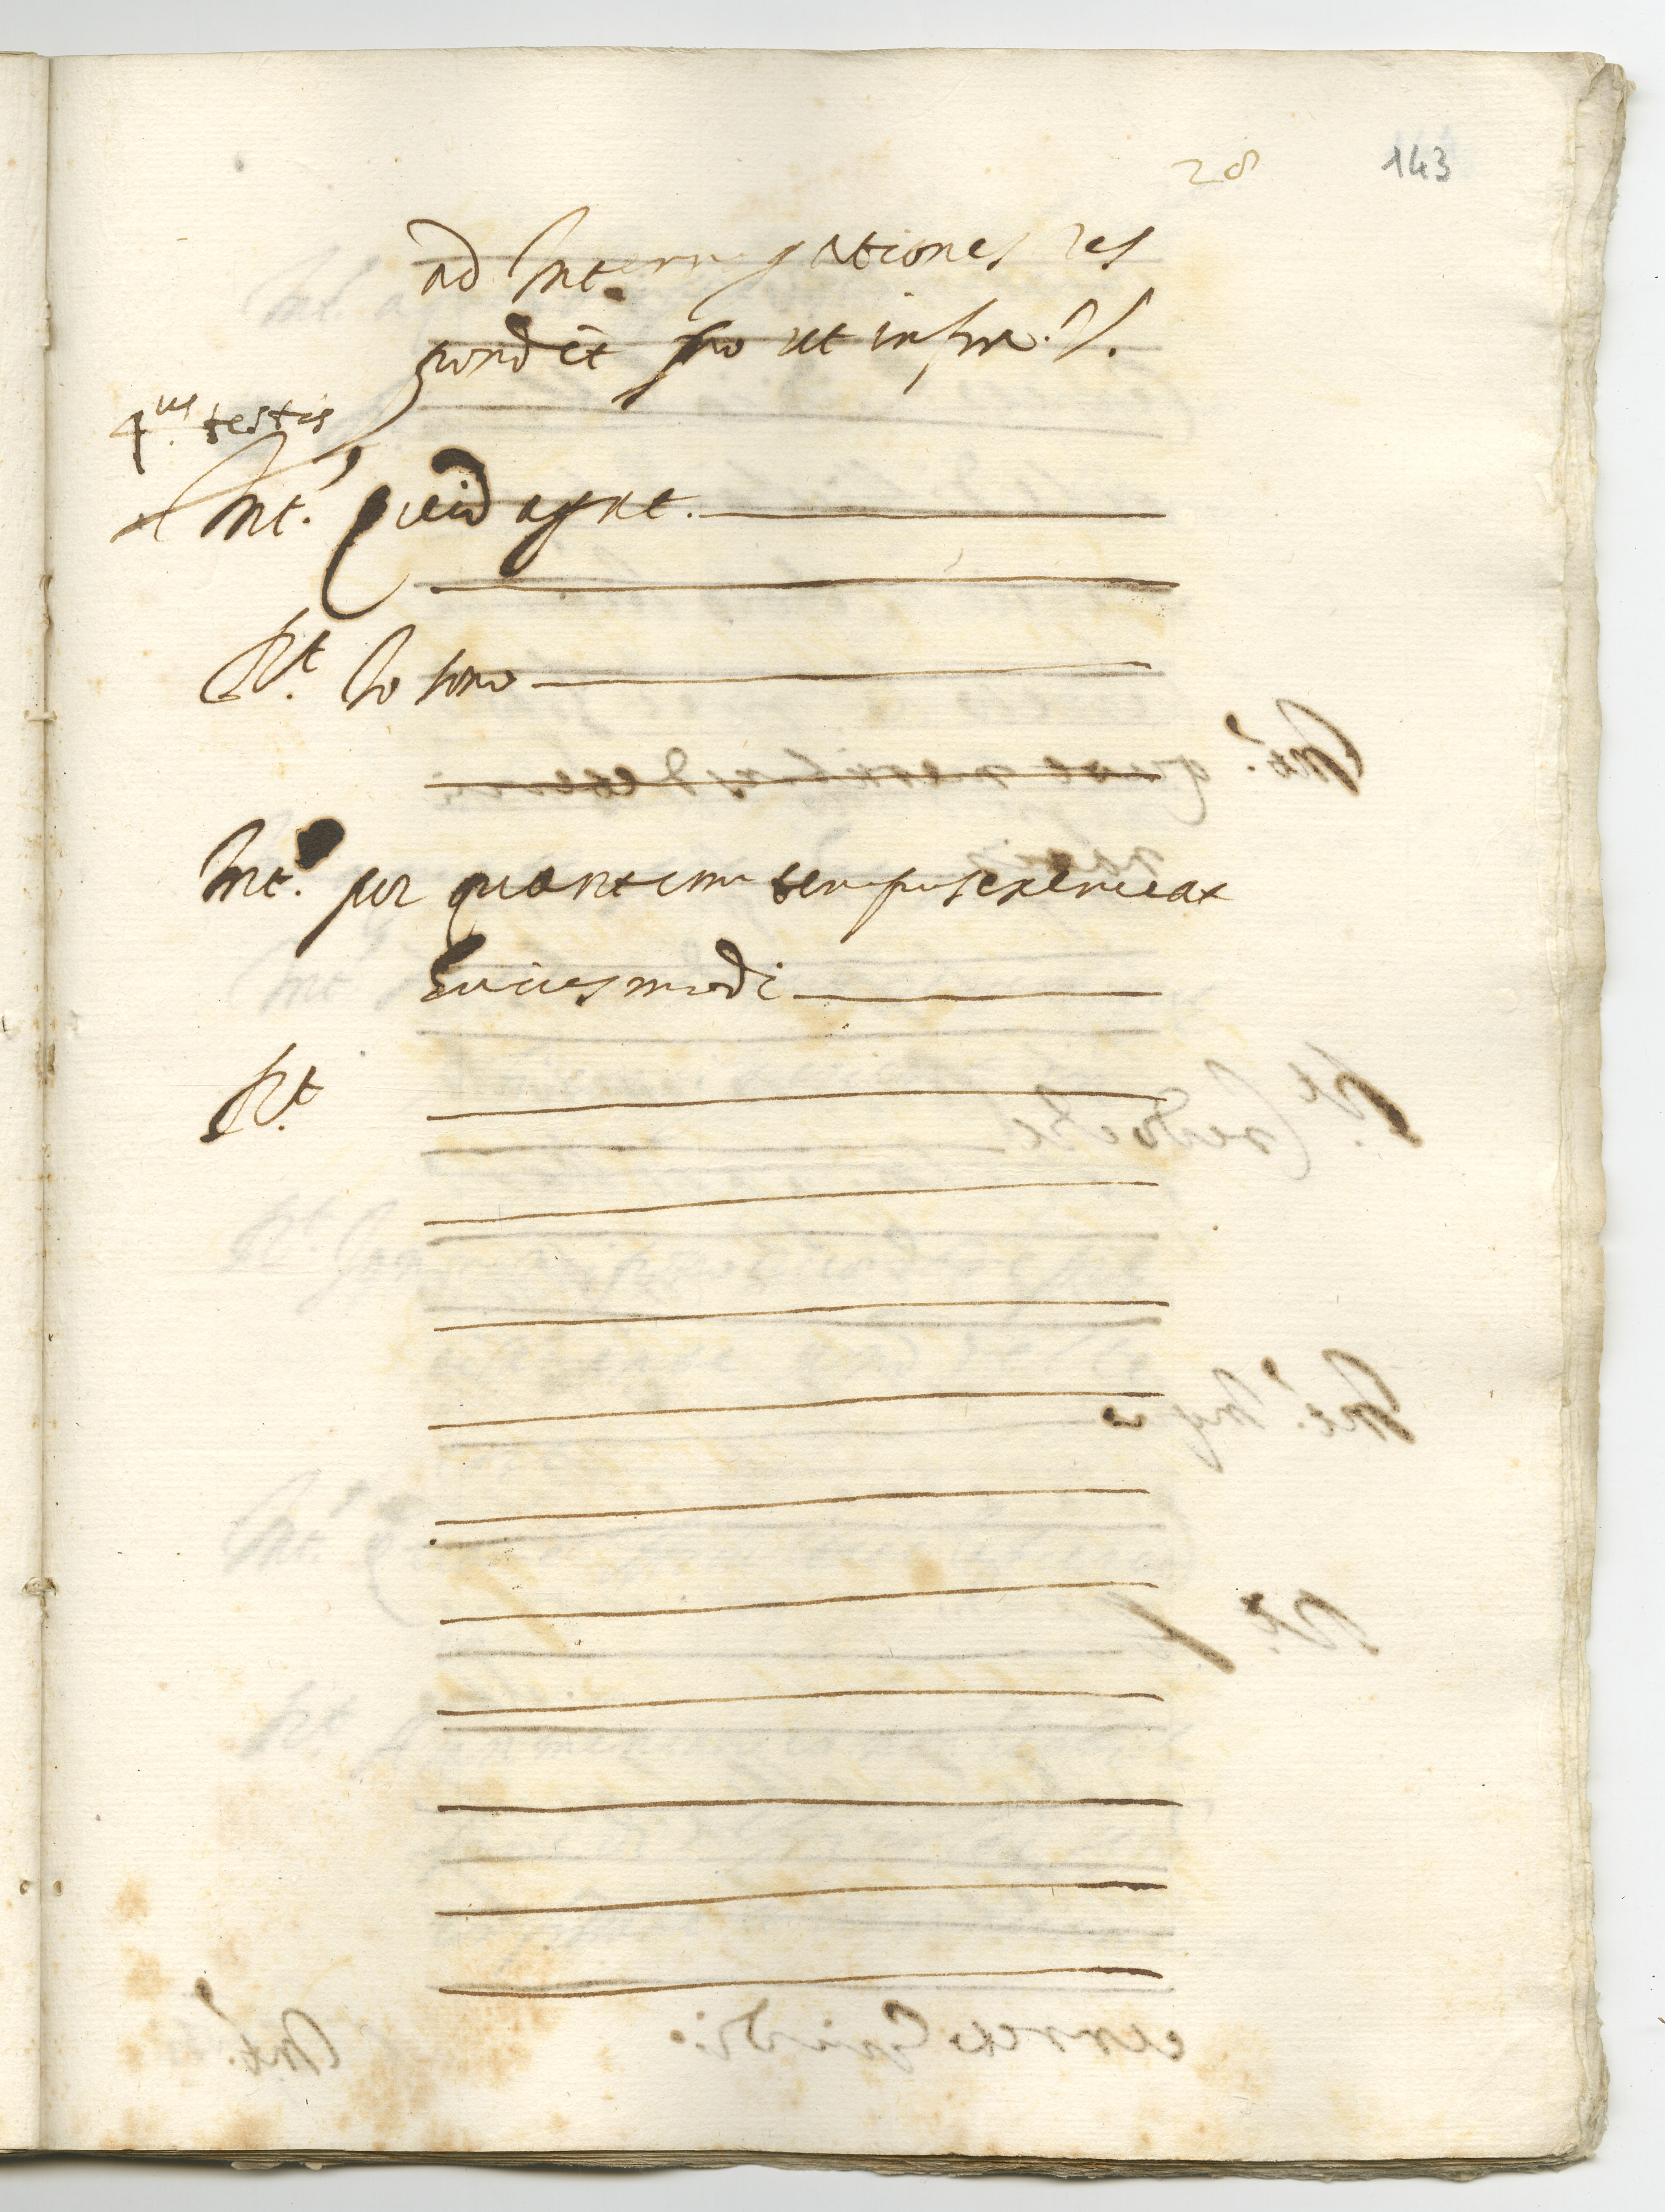 28 143
ad Interrogationes res
pondēt pro ut infra. V.
4.us testis
Int.° Quid agat.
R.t Io sono
Int.° per quantum tempus exerceat
huiusmodi
R.t